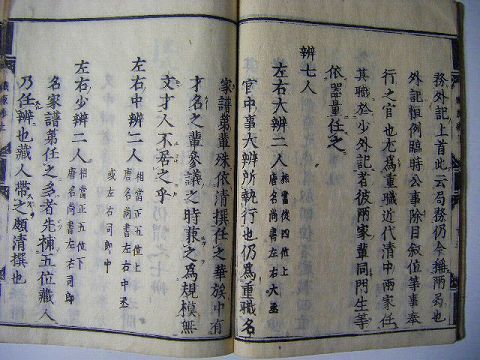 務外記上首此云局務仍今稱兩局也
外記恒例臨時公事除目叙位等事奉
行之官也尤為重職近代清中兩家任
其職於少外記者彼兩家輩同門生等
依器量任之
辨七人
左右大辨二人 相當從四位上 唐名尚書左右大丞
官中事大辨所執行也仍為重職名
家譜第輩殊依清撰任之華族中有
才名之輩參議之時兼之為規模無
文才人不居之乎
左右中辨二人 相當正五位上 唐名尚書左右中丞
或左右司郎中
左右少辨二人 相當正五位下 唐名尚書左右司郎
名家譜第任之多者先補五位藏人
乃任辨也藏人帶之頗清撰也